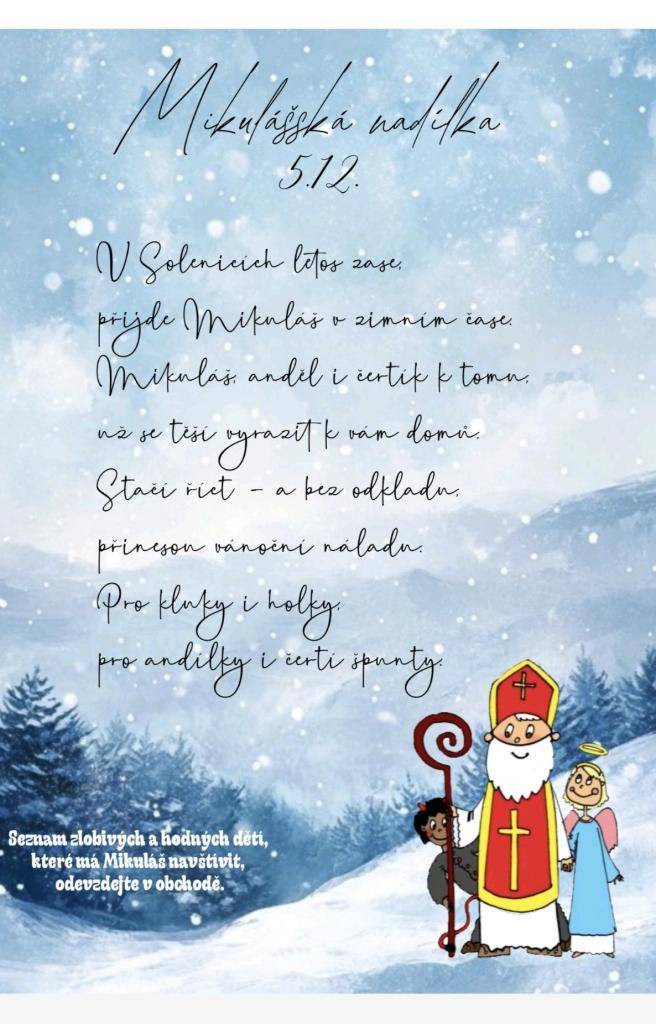 Mikulášská nadílka
5.12.
V Solenicích letos zase,
přijde Mikuláš v zimním čase.
Mikuláš, anděl i čertík k tomu,
už se těší vyrazit k vám domů.
Stačí říct - a bez odkladu,
přinesou vánoční náladu.
Pro kluky i holky,
pro andílky i čertí špunty.
Seznam zlobivých a hodných dětí,
které má Mikuláš navštívit,
odevzdejte v obchodě.